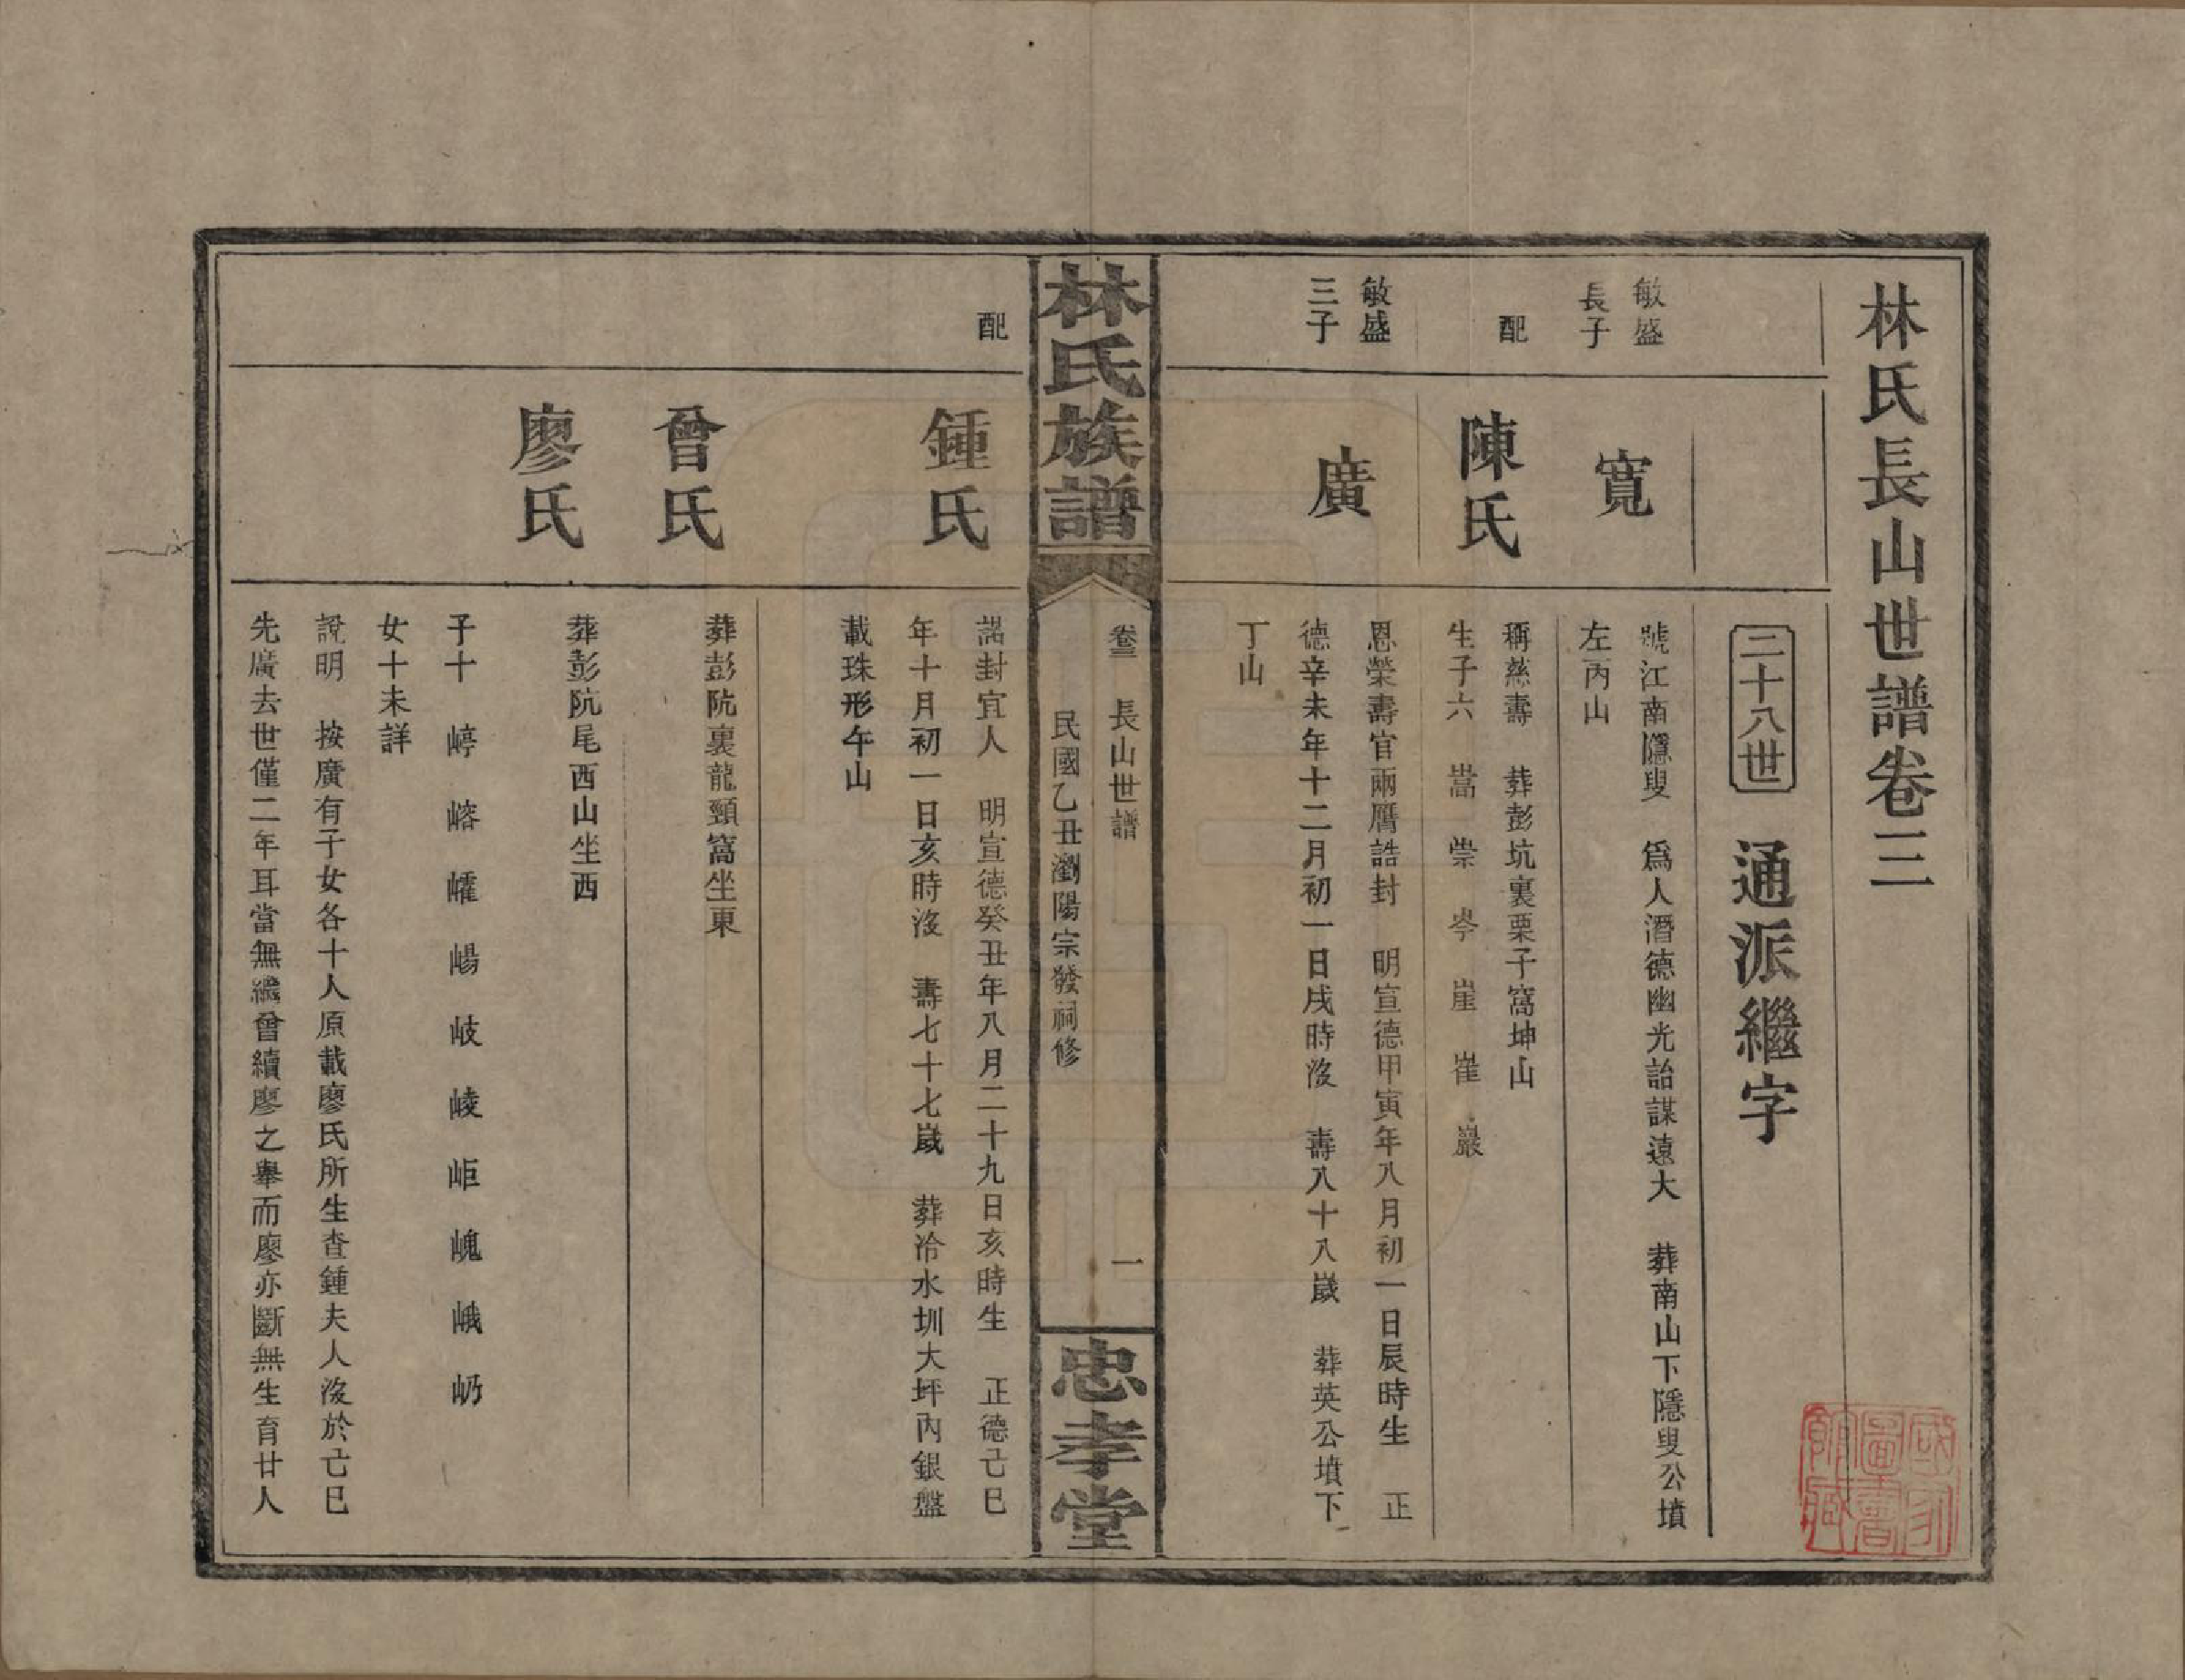 林氏長山世譜卷三
二十八世 通派繼字
敏盛
長子
寬
號江南隱叟 爲人潛德幽光詒謀遠大 葬南山下隱叟公墳
左丙山
配
陳氏
稱慈壽 葬彭坑裏栗子窩坤山
生子六 嵩 崇 岑 崖 崔 巖
敏盛
三子
廣
恩榮壽官兩膺誥封 明宣德甲寅年八月初一日辰時生 正
德辛未年十二月初一日戌時沒 壽八十八歲 葬英公墳下
丁山
林氏族譜
卷三 長山世譜 一
民國乙丑瀏陽宗發祠修
忠孝堂
配
鍾氏
誥封宜人 明宣德癸丑年八月二十九日亥時生 正德己巳
年十月初一日亥時沒 壽七十七歲 葬冷水圳大坪內銀盤
載珠形午山
曾氏
葬彭阬裏龍頸窩坐東
廖氏
葬彭阬尾西山坐西
子十 崞 嵱 巏 崵 岐 崚 岠 嵬 峨 屷
女十未詳
說明 按廣有子女各十人原載廖氏所生查鍾夫人沒於己巳
先廣去世僅二年耳當無繼曾續廖之舉而廖亦斷無生育廿人
國家圖書館藏